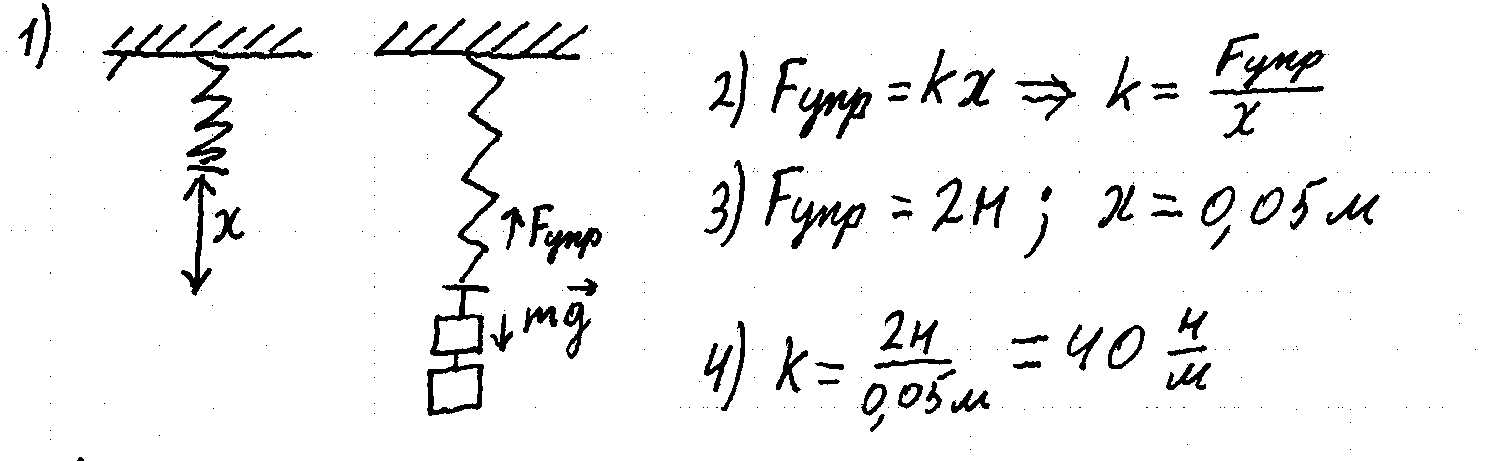 1)
x
Fупр
mg⃗
2) Fупр = kx ⇒ k = Fупр / x
3) Fупр = 2Н ; x = 0,05 м
4) k = 2Н / 0,05 м = 40 Н/м